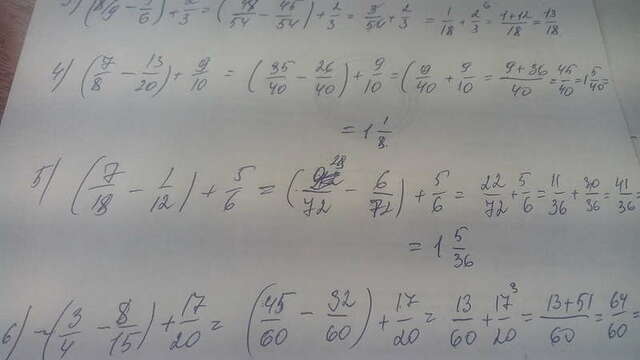 3) (8/9 − 5/6) + 2/3 = (48/54 − 45/54) + 2/3 = 3/54 + 2/3 = 1/18 + 2/3 6 = 1+12/18 = 13/18
4) (7/8 − 13/20) + 9/10 = (35/40 − 26/40) + 9/10 = (9/40 + 9/10 = 9+36/40 = 45/40 = 1 5/40 =
= 1 1/8
5) (7/18 − 1/12) + 5/6 = (28/72 − 6/72) + 5/6 = 22/72 + 5/6 = 11/36 + 30/36 = 41/36 =
= 1 5/36
6) (3/4 − 8/15) + 17/20 = (45/60 − 32/60) + 17/20 = 13/60 + 17/20 3 = 13+51/60 = 64/60 =